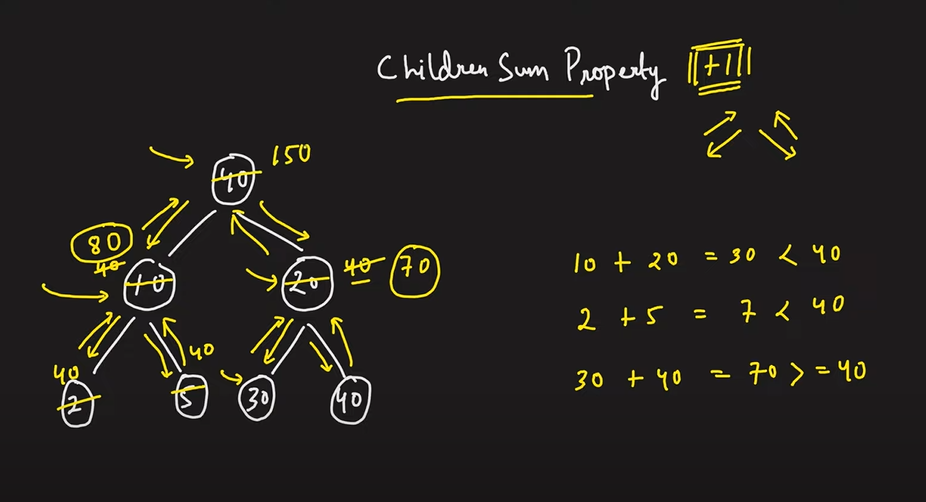 Children Sum Property +1
40 150
80
40
10 20 40 70
40 40
2 5 30 40
10 + 20 = 30 < 40
2 + 5 = 7 < 40
30 + 40 = 70 > = 40